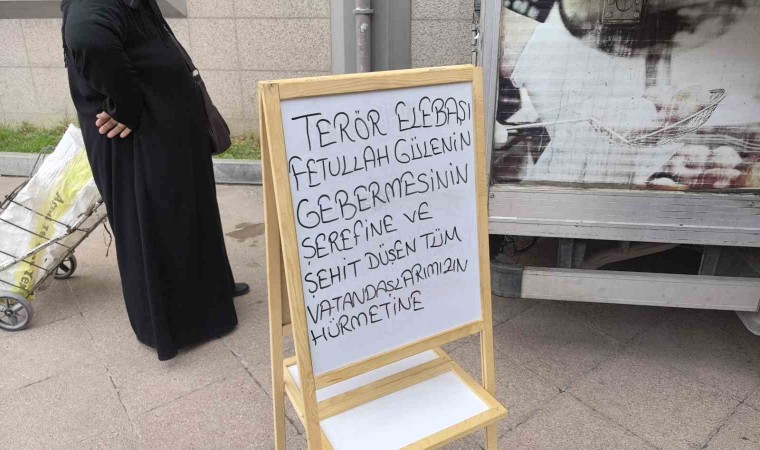 TERÖR ELEBAŞI
FETULLAH GÜLENİN
GEBERMESİNİN
ŞEREFİNE VE
ŞEHİT DÜŞEN TÜM
VATANDAŞLARIMIZIN
HÜRMETİNE